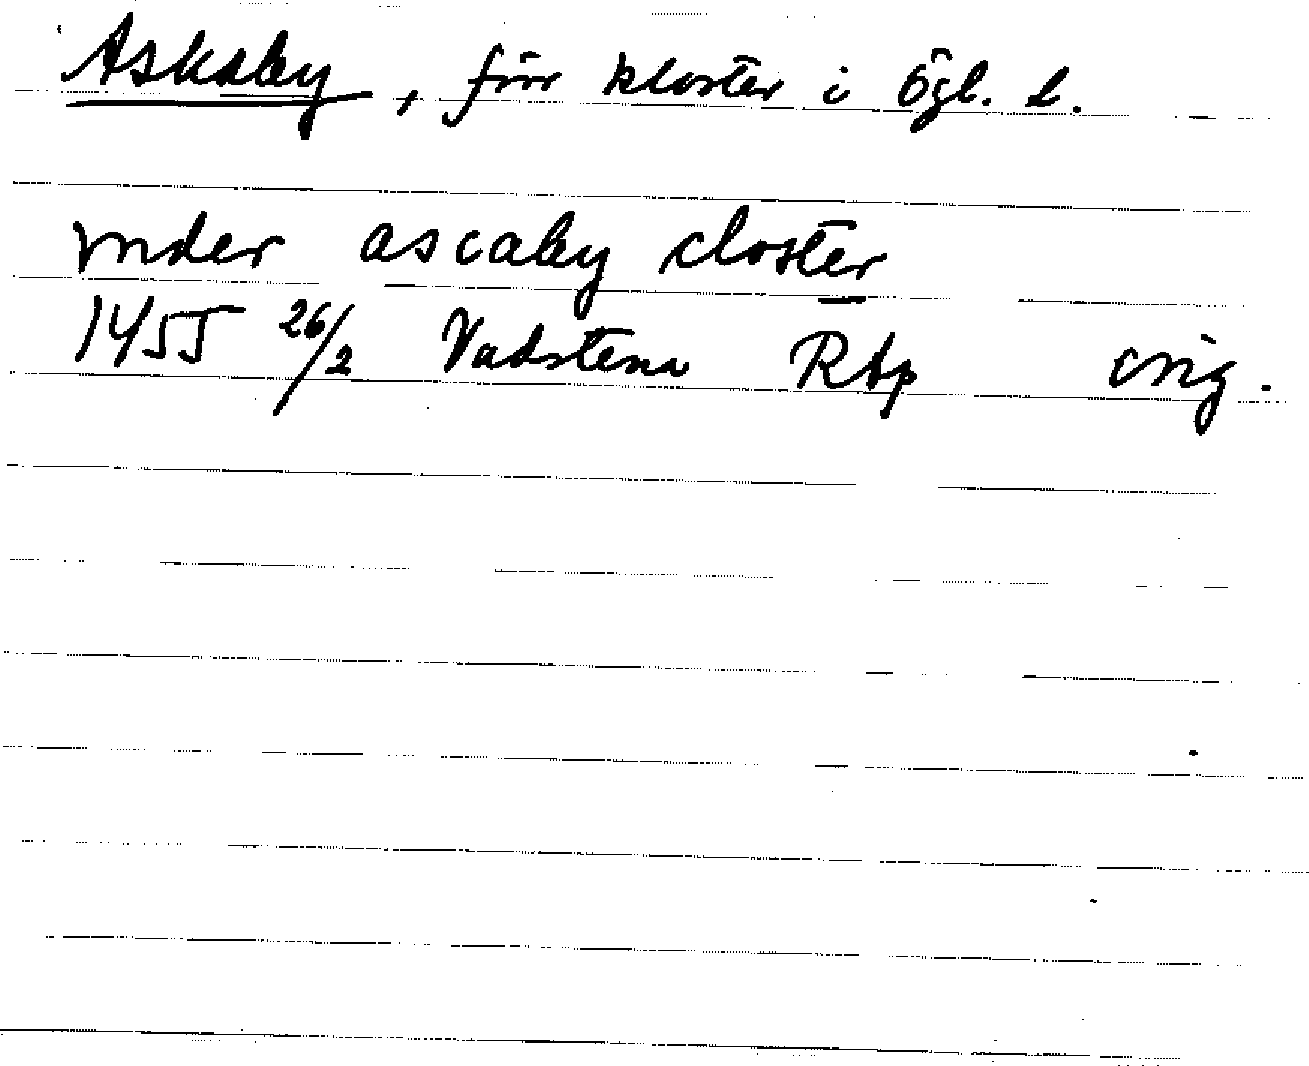 Askaby, förr kloster i Ögl. l.
vnder ascaby closter
1455 26/2 Vadstena RAp orig.